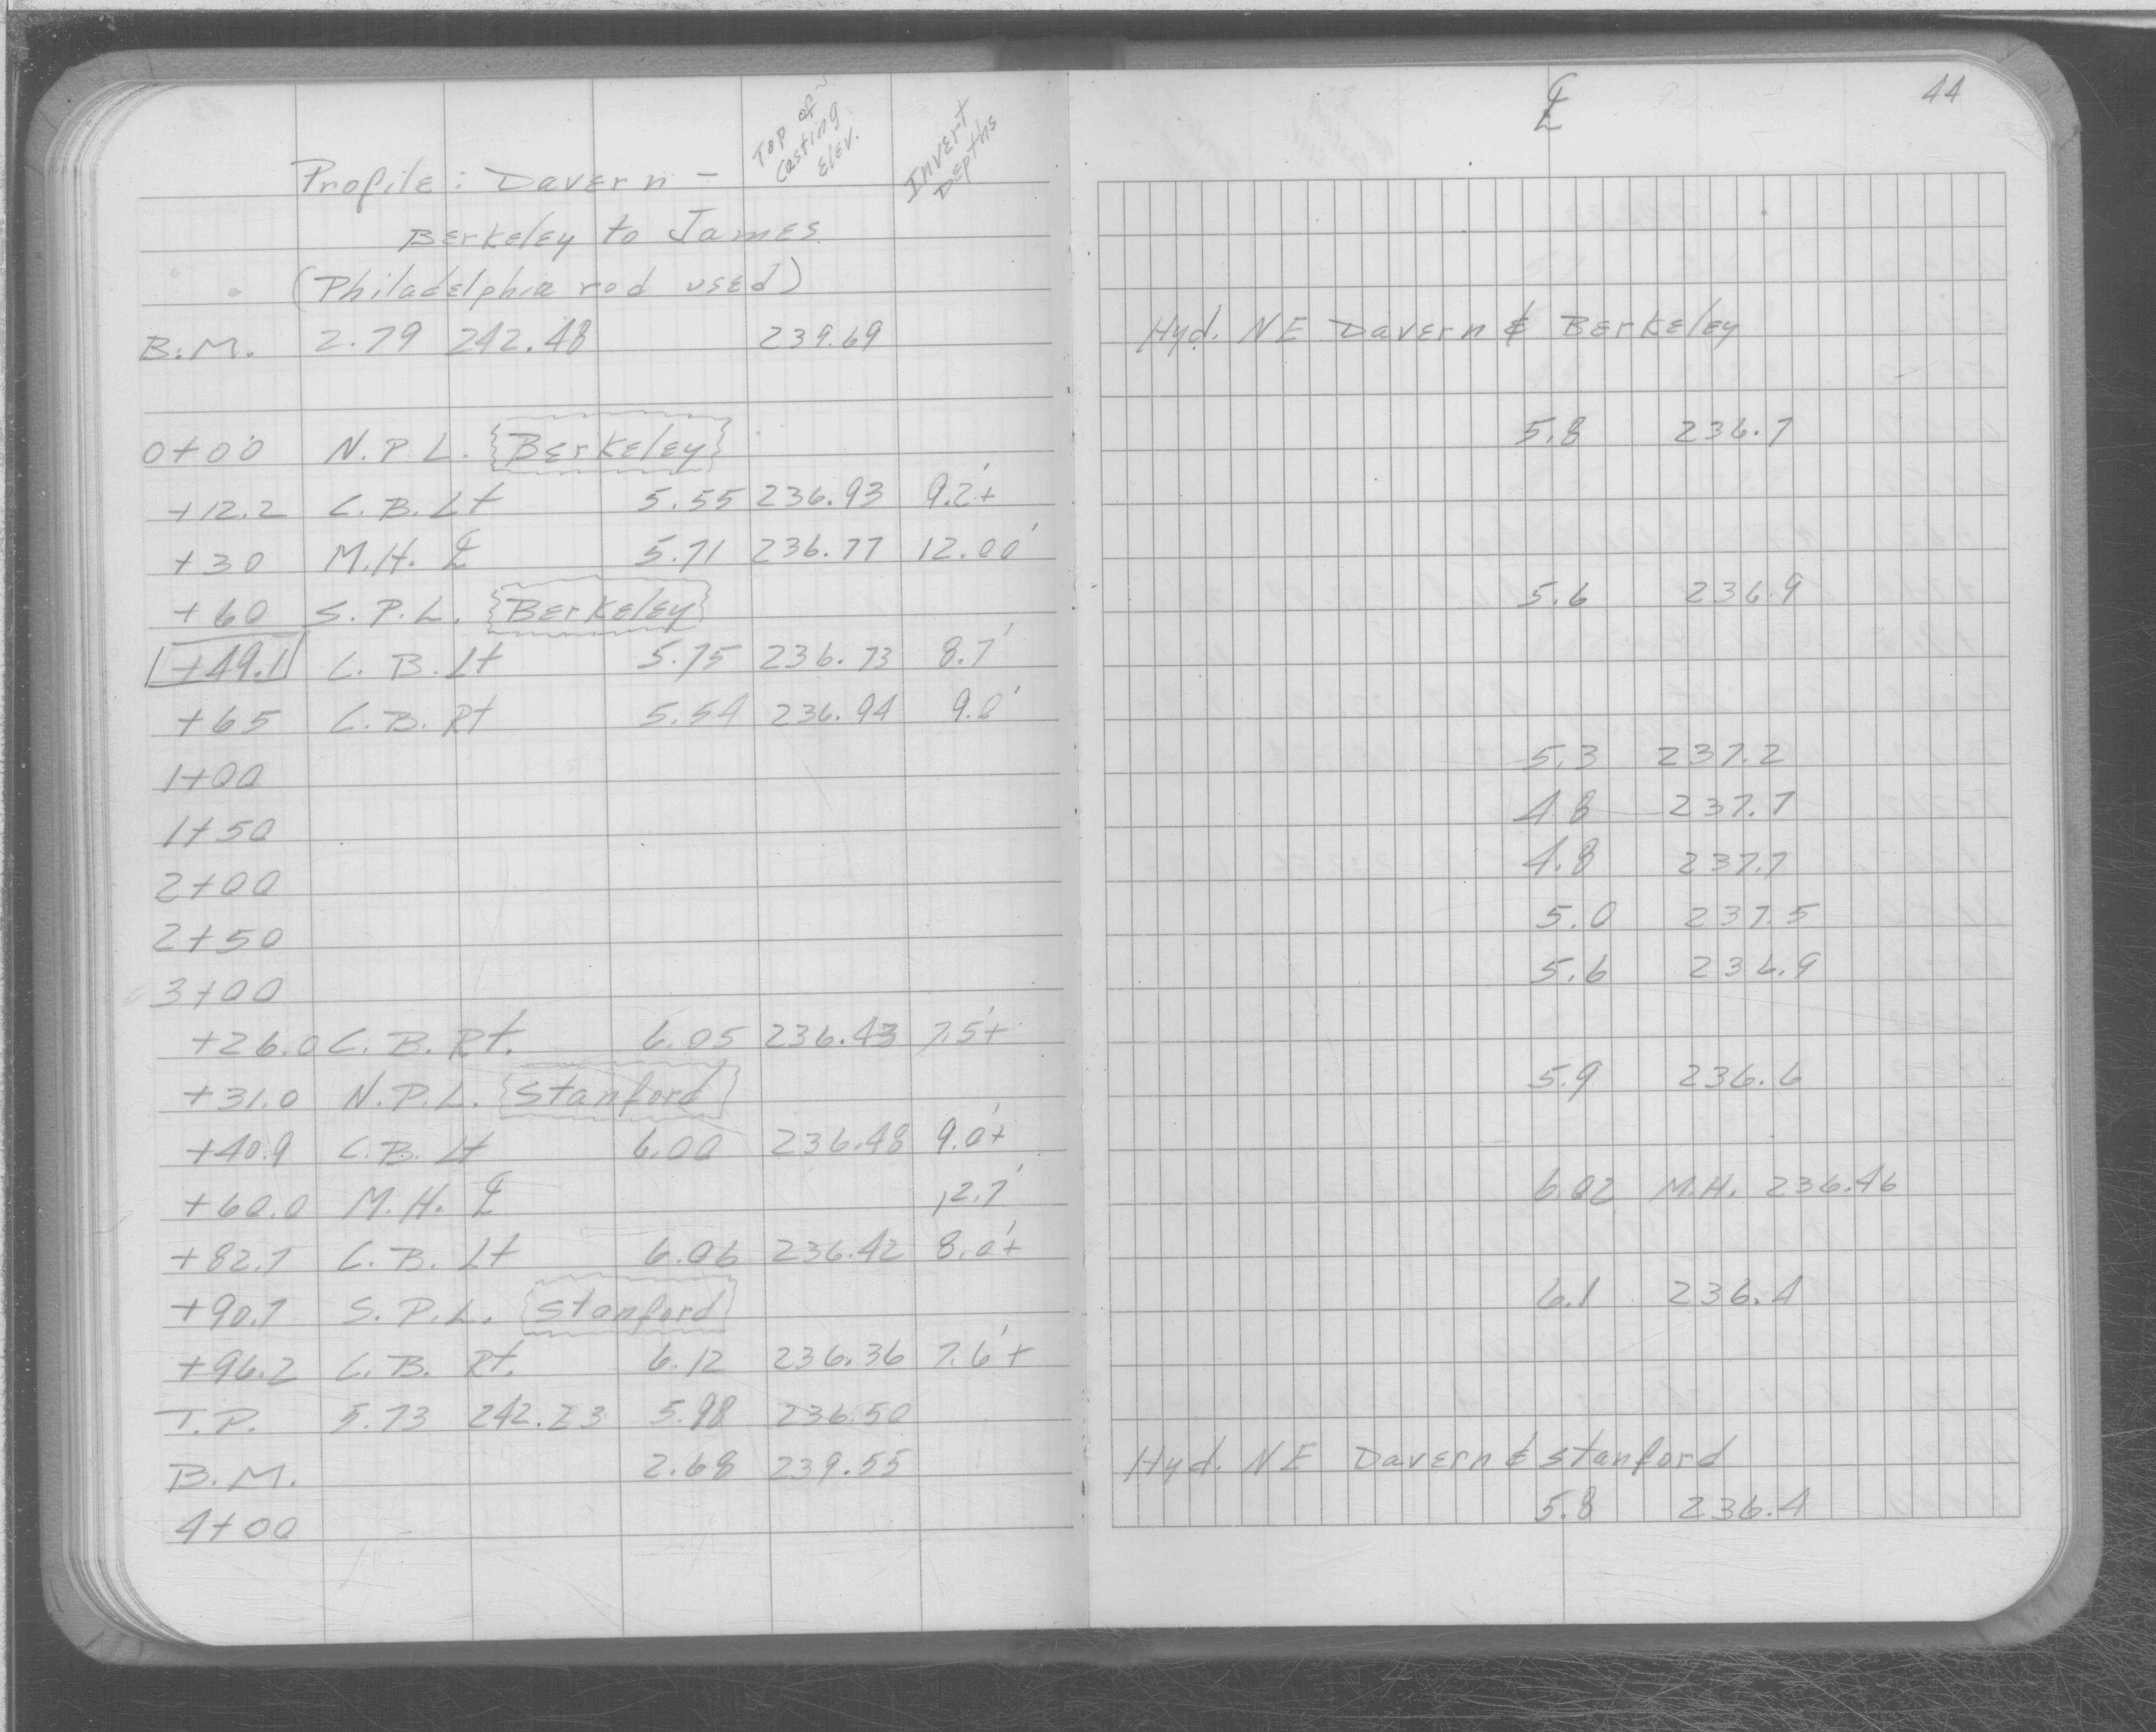 Top of Casting Elev.
Invert Depths
Profile: Davern -
Berkeley to James
(Philadelphia rod used)
B.M. 2.79 242.48 239.69
0+00 N.P.L. Berkeley
+12.2 C.B. Lt 5.55 236.93 9.2'+
+30 M.H. ℄ 5.71 236.77 12.00'
+60 S.P.L. Berkeley
+49.1 C.B. Lt 5.75 236.73 8.7'
+65 C.B. Rt 5.54 236.94 9.0'
1+00
1+50
2+00
2+50
3+00
+26.0 C.B. Rt. 6.05 236.43 7.5'+
+31.0 N.P.L. Stanford
+40.9 C.B. Lt 6.00 236.48 9.0'+
+60.0 M.H. ℄ 12.7'
+82.7 C.B. Lt 6.06 236.42 8.0'+
+90.7 S.P.L. Stanford
+96.2 C.B. Rt. 6.12 236.36 7.6'+
T.P. 5.73 242.23 5.98 236.50
B.M. 2.68 239.55
4+00
℄ 44
Hyd. NE Davern & Berkeley
5.8 236.7
5.6 236.9
5.3 237.2
4.8 237.7
4.8 237.7
5.0 237.5
5.6 236.9
5.9 236.6
6.02 M.H. 236.46
6.1 236.4
Hyd. NE Davern & Stanford
5.8 236.4